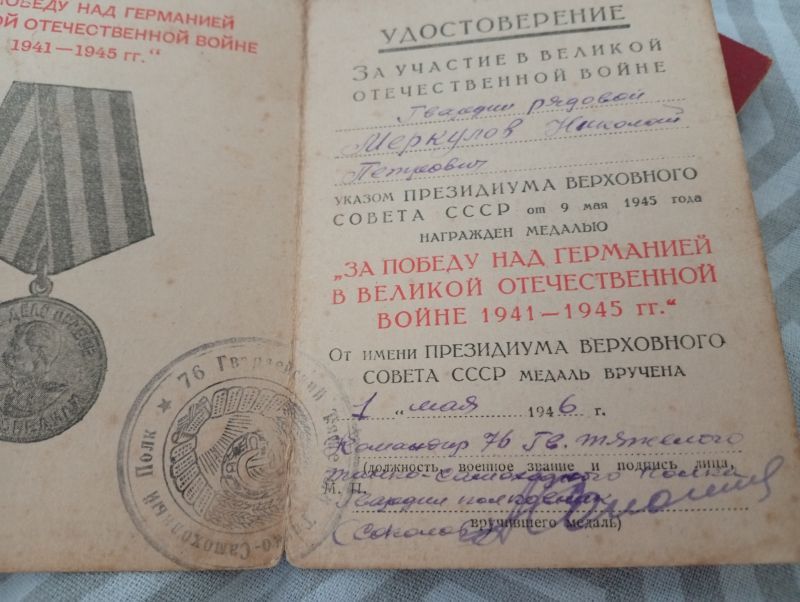 ПОБЕДУ НАД ГЕРМАНИЕЙ
ОЙ ОТЕЧЕСТВЕННОЙ ВОЙНЕ
1941—1945 гг."
УДОСТОВЕРЕНИЕ
ЗА УЧАСТИЕ В ВЕЛИКОЙ
ОТЕЧЕСТВЕННОЙ ВОЙНЕ
Гвардии рядовой
Меркулов Николай
Петрович
УКАЗОМ ПРЕЗИДИУМА ВЕРХОВНОГО
СОВЕТА СССР от 9 мая 1945 года
НАГРАЖДЕН МЕДАЛЬЮ
„ЗА ПОБЕДУ НАД ГЕРМАНИЕЙ
В ВЕЛИКОЙ ОТЕЧЕСТВЕННОЙ
ВОЙНЕ 1941—1945 гг."
ОТ ИМЕНИ ПРЕЗИДИУМА ВЕРХОВНОГО
СОВЕТА СССР МЕДАЛЬ ВРУЧЕНА
„1" мая 1946 г.
Командир 76 Гв. тяжелого
танко-самоходного полка
(должность, военное звание и подпись лица,
М. П.
Гвардии полковник
(Соколов)
вручившего медаль)
★ 76 Гвардейский
о-Самоходный Полк